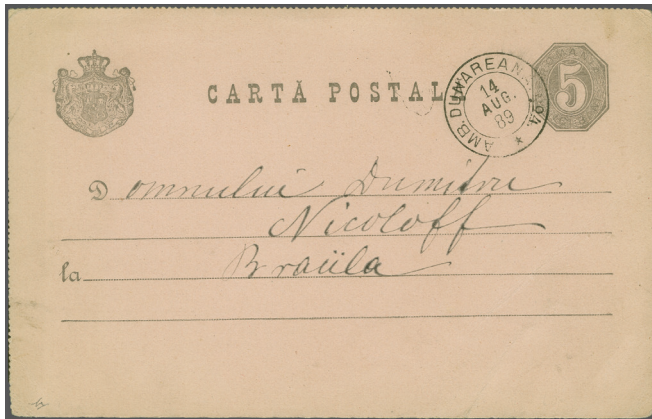 CARTĂ POSTALĂ
AMB. DUNAREANA
14
AUG.
89
5
Domnului Dumitru
Nicoloff
la Braiila